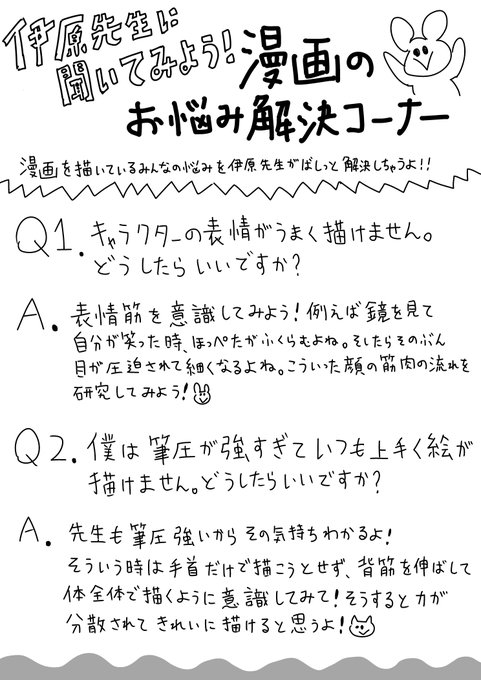 伊原先生に
聞いてみよう!
漫画の
お悩み解決コーナー
漫画を描いているみんなの悩みを伊原先生がばしっと解決しちゃうよ!!
Q1. キャラクターの表情がうまく描けません。
どうしたらいいですか?
A. 表情筋を意識してみよう!例えば鏡を見て
自分が笑った時、ほっぺたがふくらむよね。そしたらそのぶん
目が圧迫されて細くなるよね。こういった顔の筋肉の流れを
研究してみよう!
Q2. 僕は筆圧が強すぎていつも上手く絵が
描けません。どうしたらいいですか?
A. 先生も筆圧強いからその気持ちわかるよ!
そういう時は手首だけで描こうとせず、背筋を伸ばして
体全体で描くように意識してみて!そうすると力が
分散されてきれいに描けると思うよ!